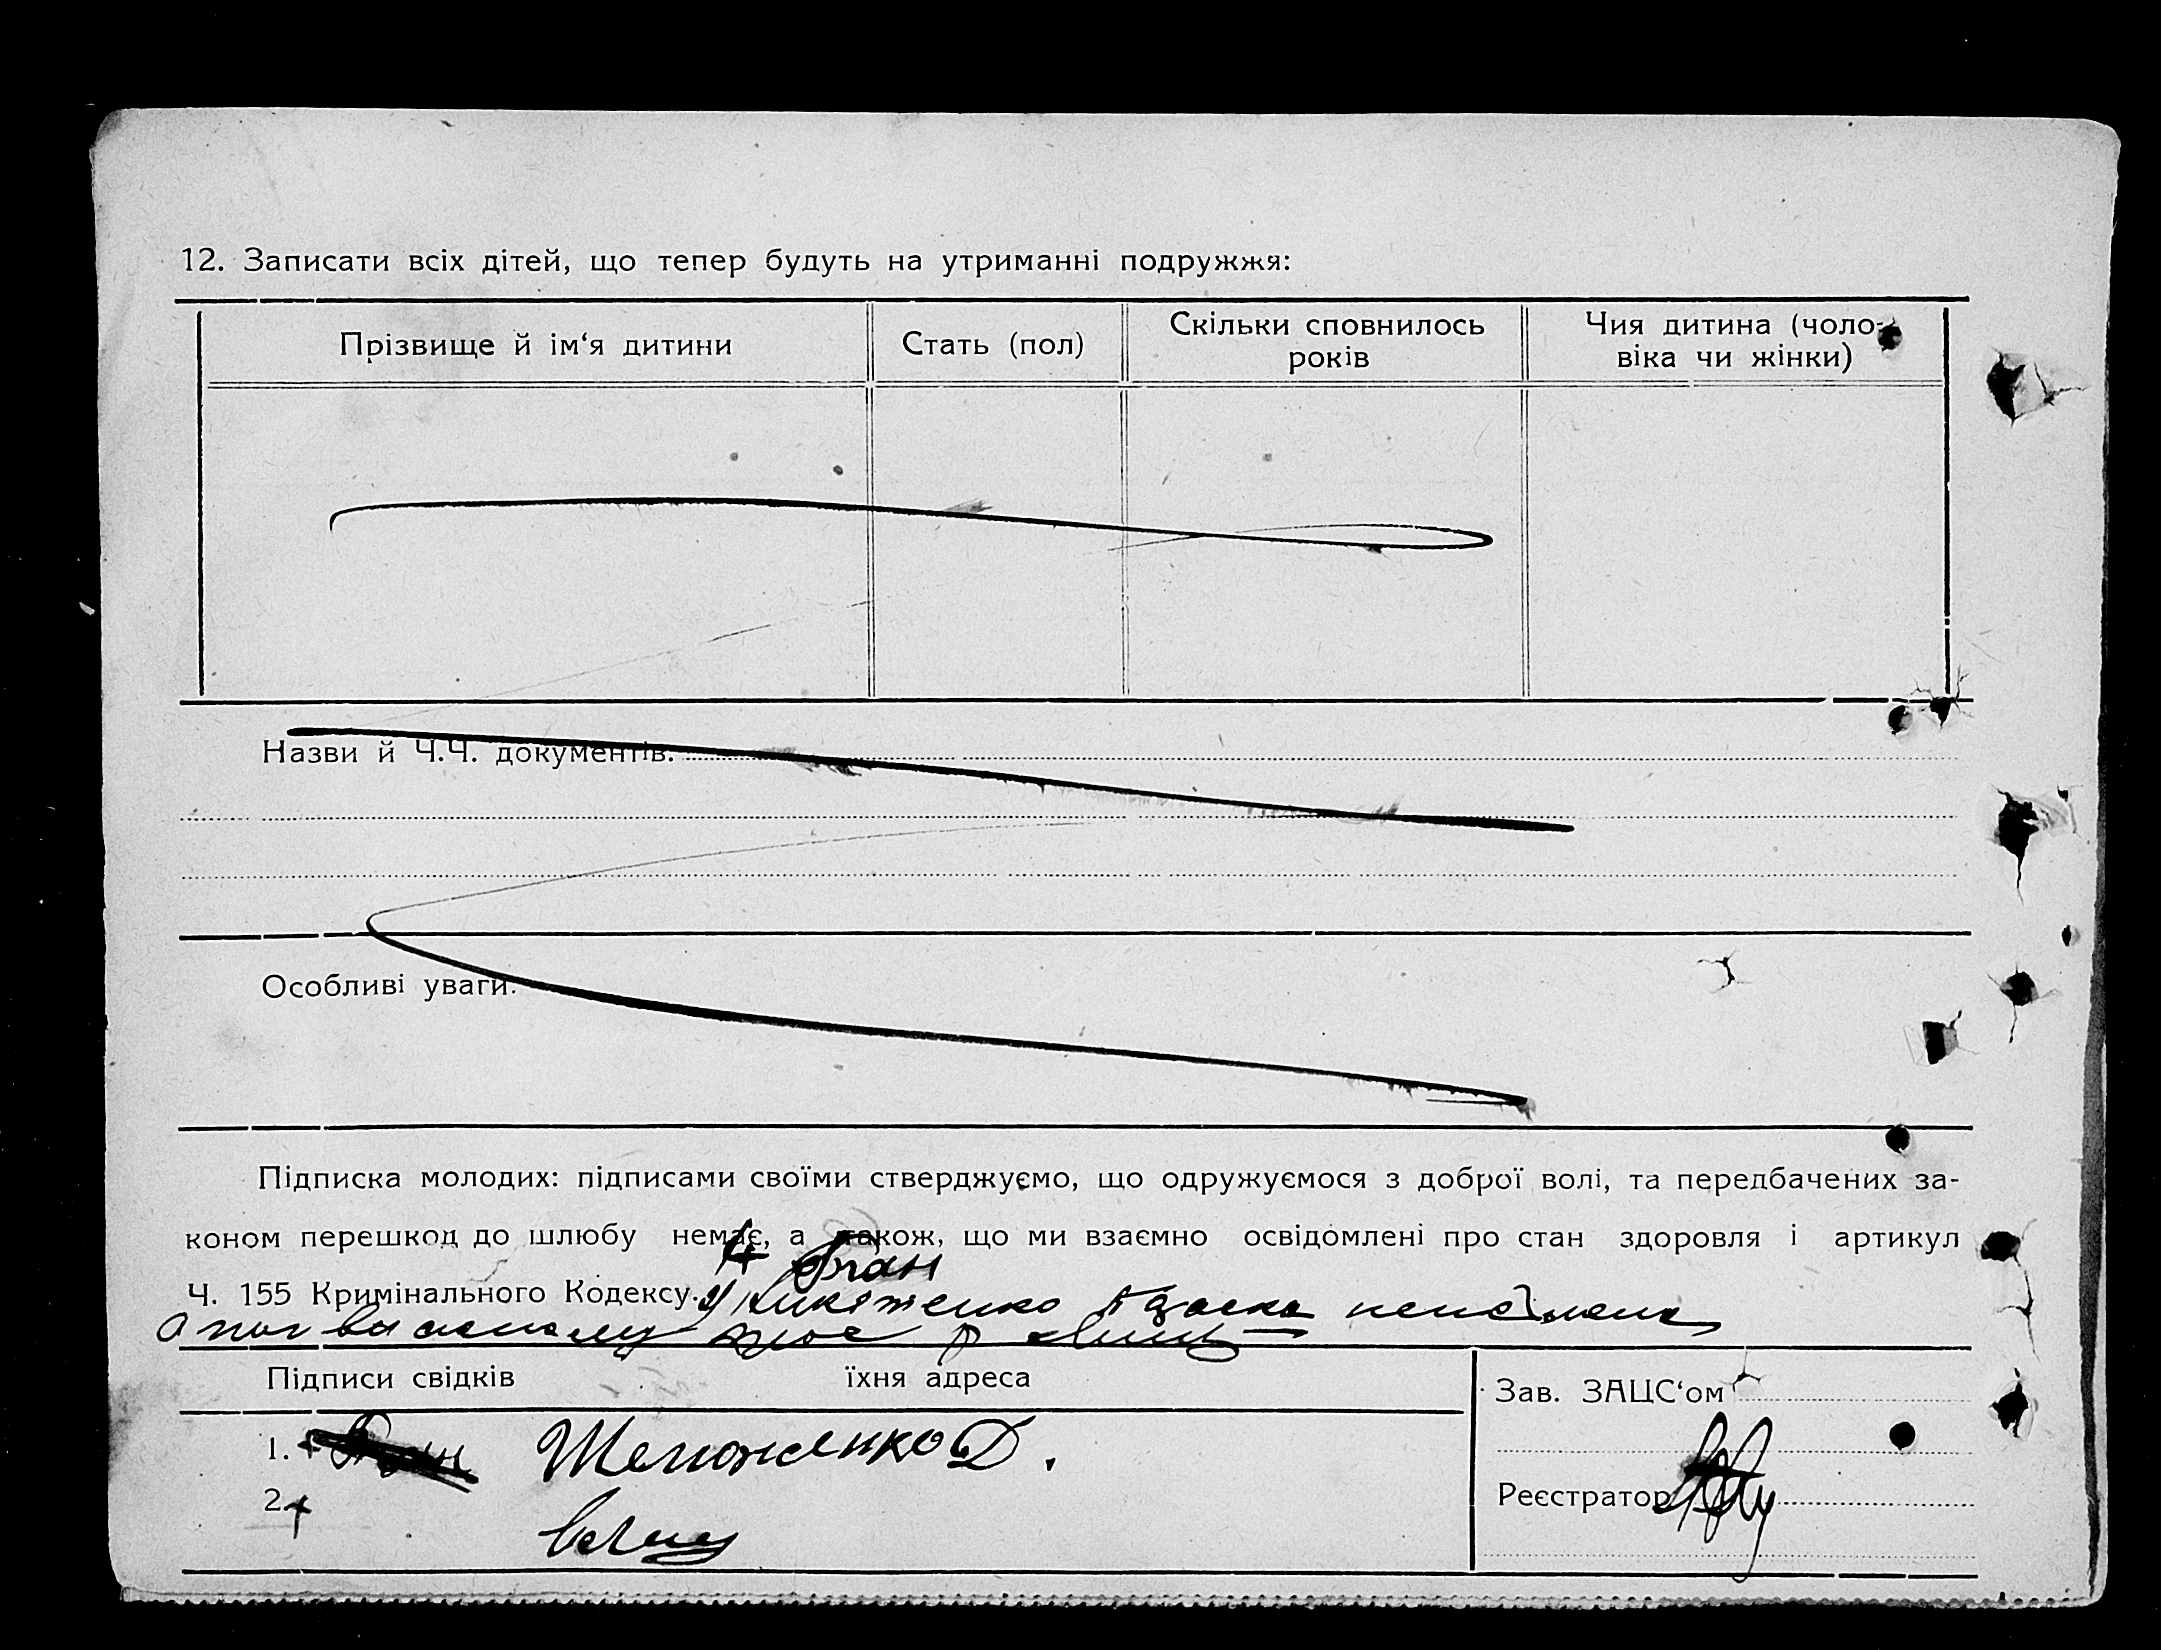 12. Записати всіх дітей, що тепер будуть на утриманні подружжя:
Прізвище й ім‘я дитини
Стать (пол)
Скільки сповнилось
років
Чия дитина (чоло-
віка чи жінки)
Назви й Ч.Ч. документів.
Особливі уваги.
Підписка молодих: підписами своїми стверджуємо, що одружуємося з доброї волі, та передбачених за-
коном перешкод до шлюбу немає, а також, що ми взаємно освідомлені про стан здоровля і артикул
Ч. 155 Кримінального Кодексу.
Підписи свідків їхня адреса
1. Д.
2.
Зав. ЗАЦС‘ом
Реєстратор